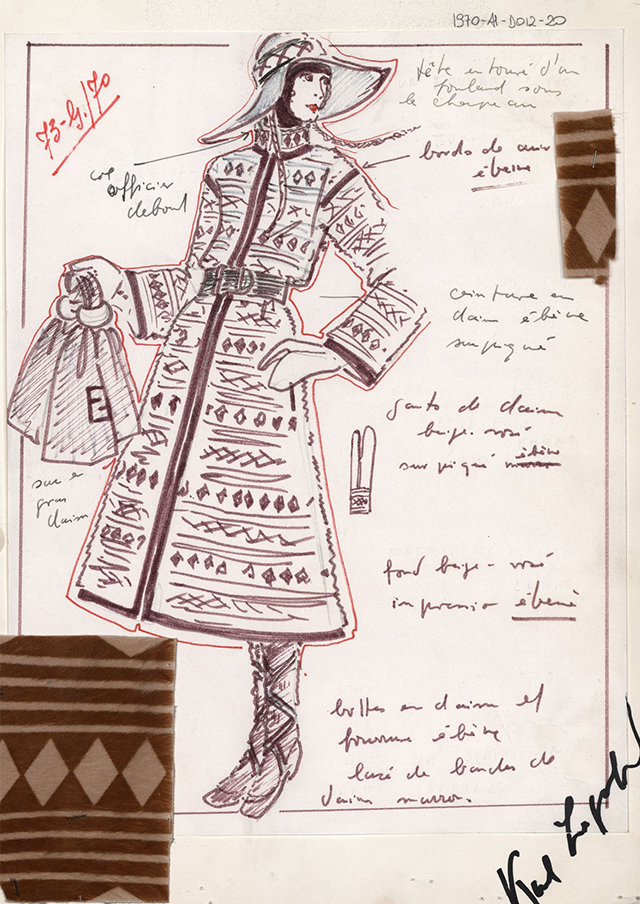 1970-AI-D012-20
73-G/70
tête entouré d'un
foulard sous
le chapeau
bords de cuir
ébène
col
officier
debout
ceinture en
daim ébène
surpiqué
gants de daim
beige-rosé
surpiqué ébène
sac en
gros
daim
fond beige-rosé
impression ébène
bottes en daim et
fourrure ébène
lacé de bandes de
daim marron.
Karl